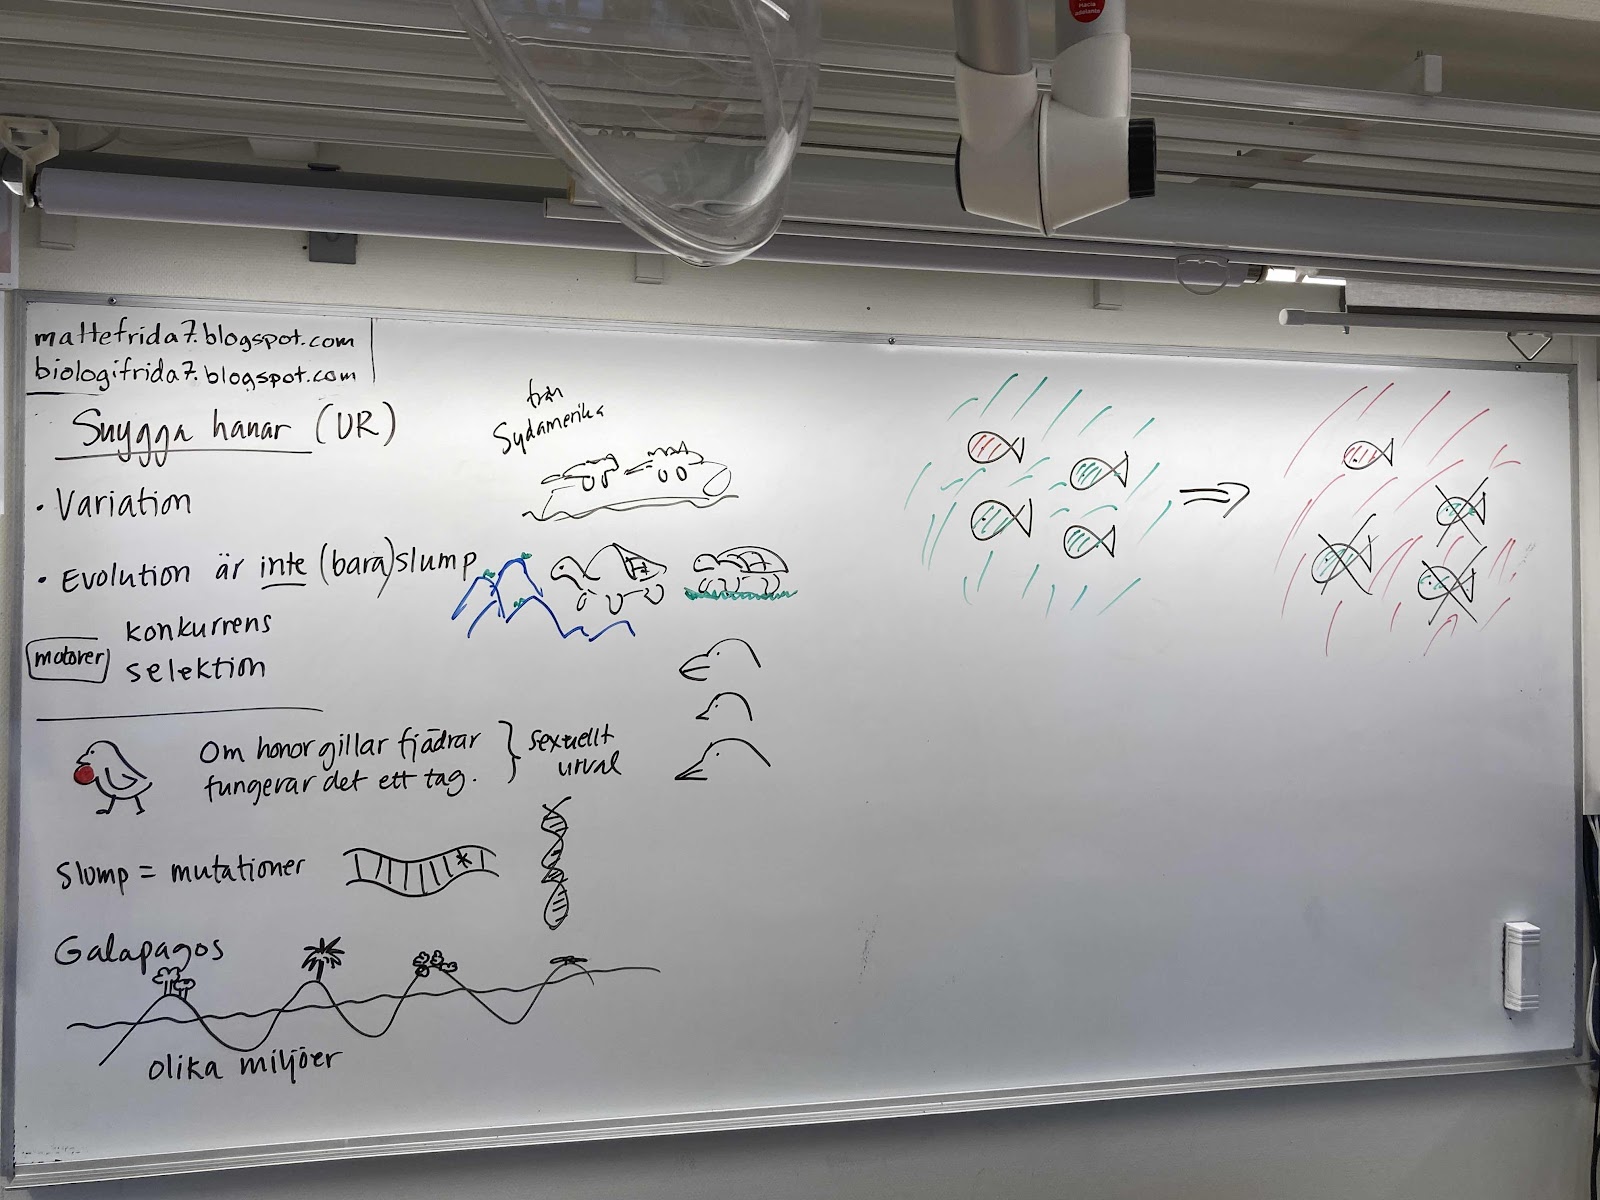 mattefrida7.blogspot.com
biologifrida7.blogspot.com
Snygga hanar (UR)
• Variation
• Evolution är inte (bara) slump
motorer
konkurrens
selektion
från
Sydamerika
Om honor gillar fjädrar
fungerar det ett tag.
Sexuellt
urval
Slump = mutationer
Galapagos
olika miljöer
Hacia
adelante